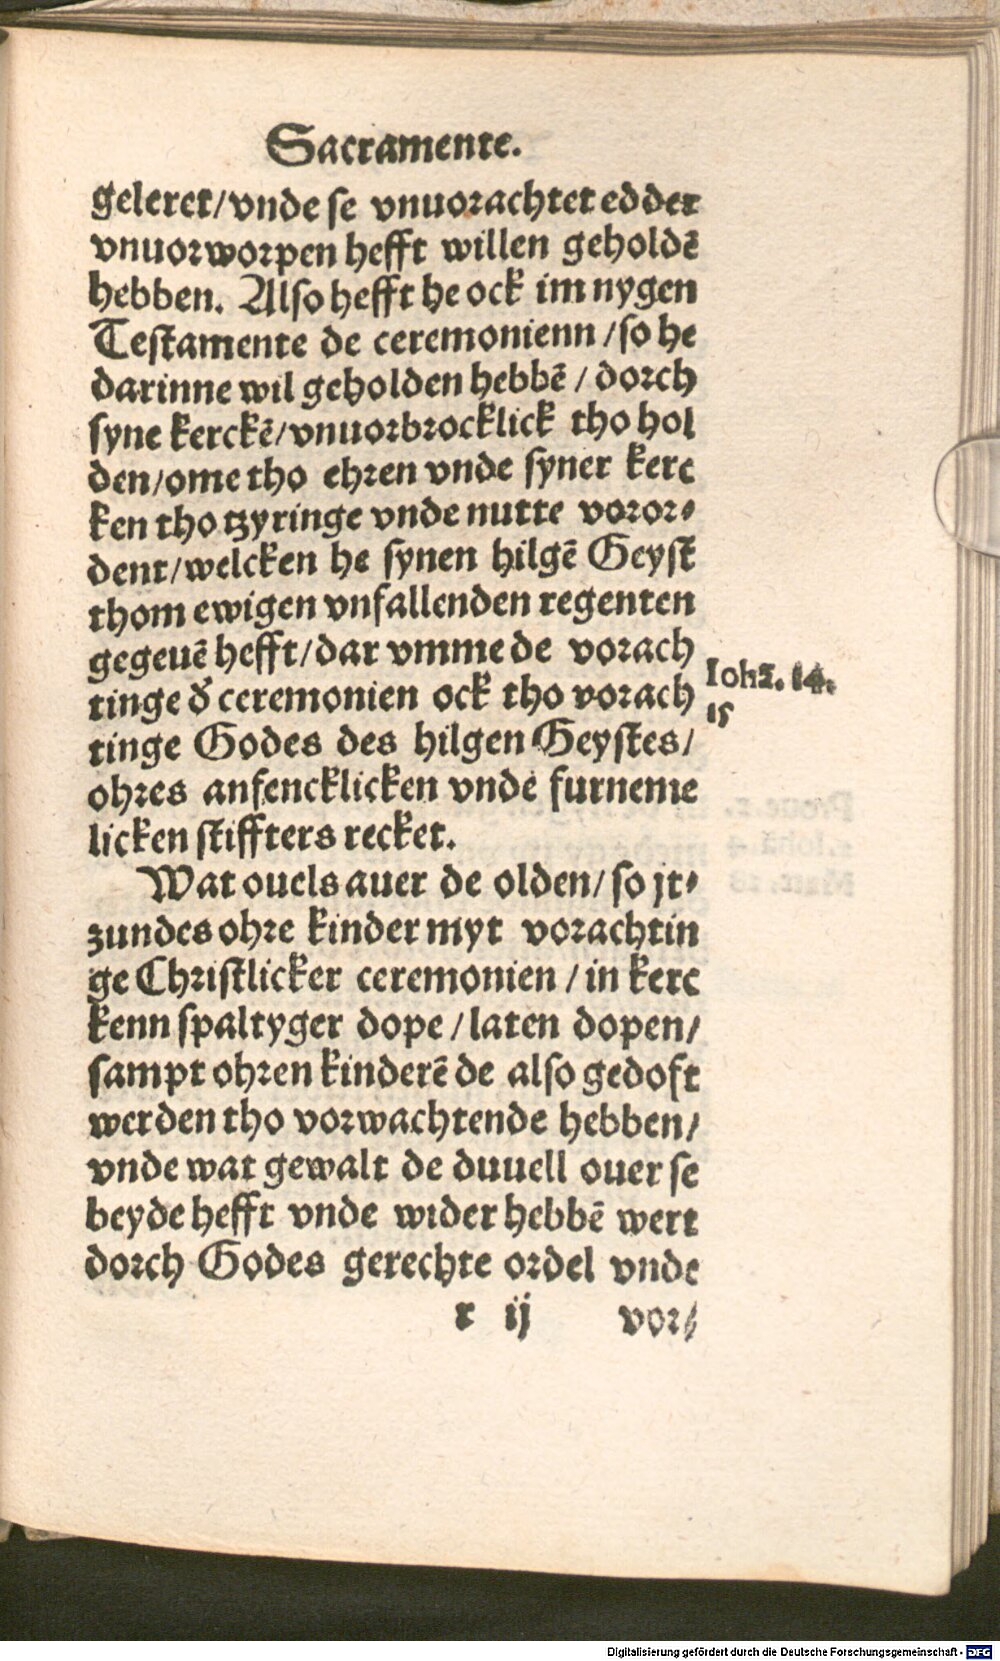 Sacramente.
geleret/vnde se vnuorachtet edder
vnuorworpen hefft willen geholdē
hebben. Also hefft he ock im nygen
Testamente de ceremonienn /so he
darinne wil geholden hebbē / dorch
syne kerckē/vnuorbrocklick tho hol
den/ome tho ehren vnde syner kerc
ken tho tzyringe vnde nutte voror⸗
dent/welcken he synen hilgē Geyst
thom ewigen vnfallenden regenten
gegeuē hefft/dar vmme de vorach
Ioh̄. 14.
tinge d̓ ceremonien ock tho vorach
15
tinge Godes des hilgen Geystes/
ohres anfencklicken vnde furneme
licken stiffters recket.
Wat ouels auer de olden/so jt⸗
zundes ohre kinder myt vorachtin
ge Christlicker ceremonien / in kerc
kenn spaltyger dope /laten dopen/
sampt ohren kinderē de also gedoft
werden tho vorwachtende hebben/
vnde wat gewalt de duuell ouer se
beyde hefft vnde wider hebbē wert
dorch Godes gerechte ordel vnde
r ij vor⸗
Digitalisierung gefördert durch die Deutsche Forschungsgemeinschaft - DFG